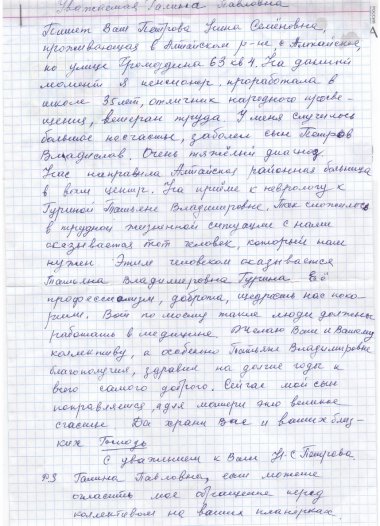 Уважаемая Галина Павловна
Пишет Вам Петрова Нина Семёновна,
проживающая в Алтайском р-не с Алтайское,
по улице Громодина 63 кв 4. На данный
момент я пенсионер. проработала в
школе 35 лет, отличник народного просве-
щения, ветеран труда. У меня случилось
большое несчастье, заболел сын Петров
Владислав. Очень тяжёлый диагноз.
Нас направила Алтайская районная больница
в ваш центр. На приём к неврологу к
Туриной Татьяне Владимировне. Так сложилось
в трудной жизненной ситуации с нами
оказывается тот человек, который нам
нужен Этим человеком оказывается
Татьяна Владимировна Турина Её
профессионализм, доброта, щедрость нас поко-
рили. Вот по моему такие люди должны
работать в медицине Желаю Вам и Вашему
коллективу, а особенно Татьяне Владимировне
благополучия, здравия на долгие годы и
всего самого доброго. Сейчас мой сын
поправляется, а для матери это великое
счастье. Да храни Вас и ваших близ-
ких Господь
С уважением к Вам Н.С Петрова
PS Галина Павловна, если можете
огласить мое обращение перед
коллективом на ваших планерках.